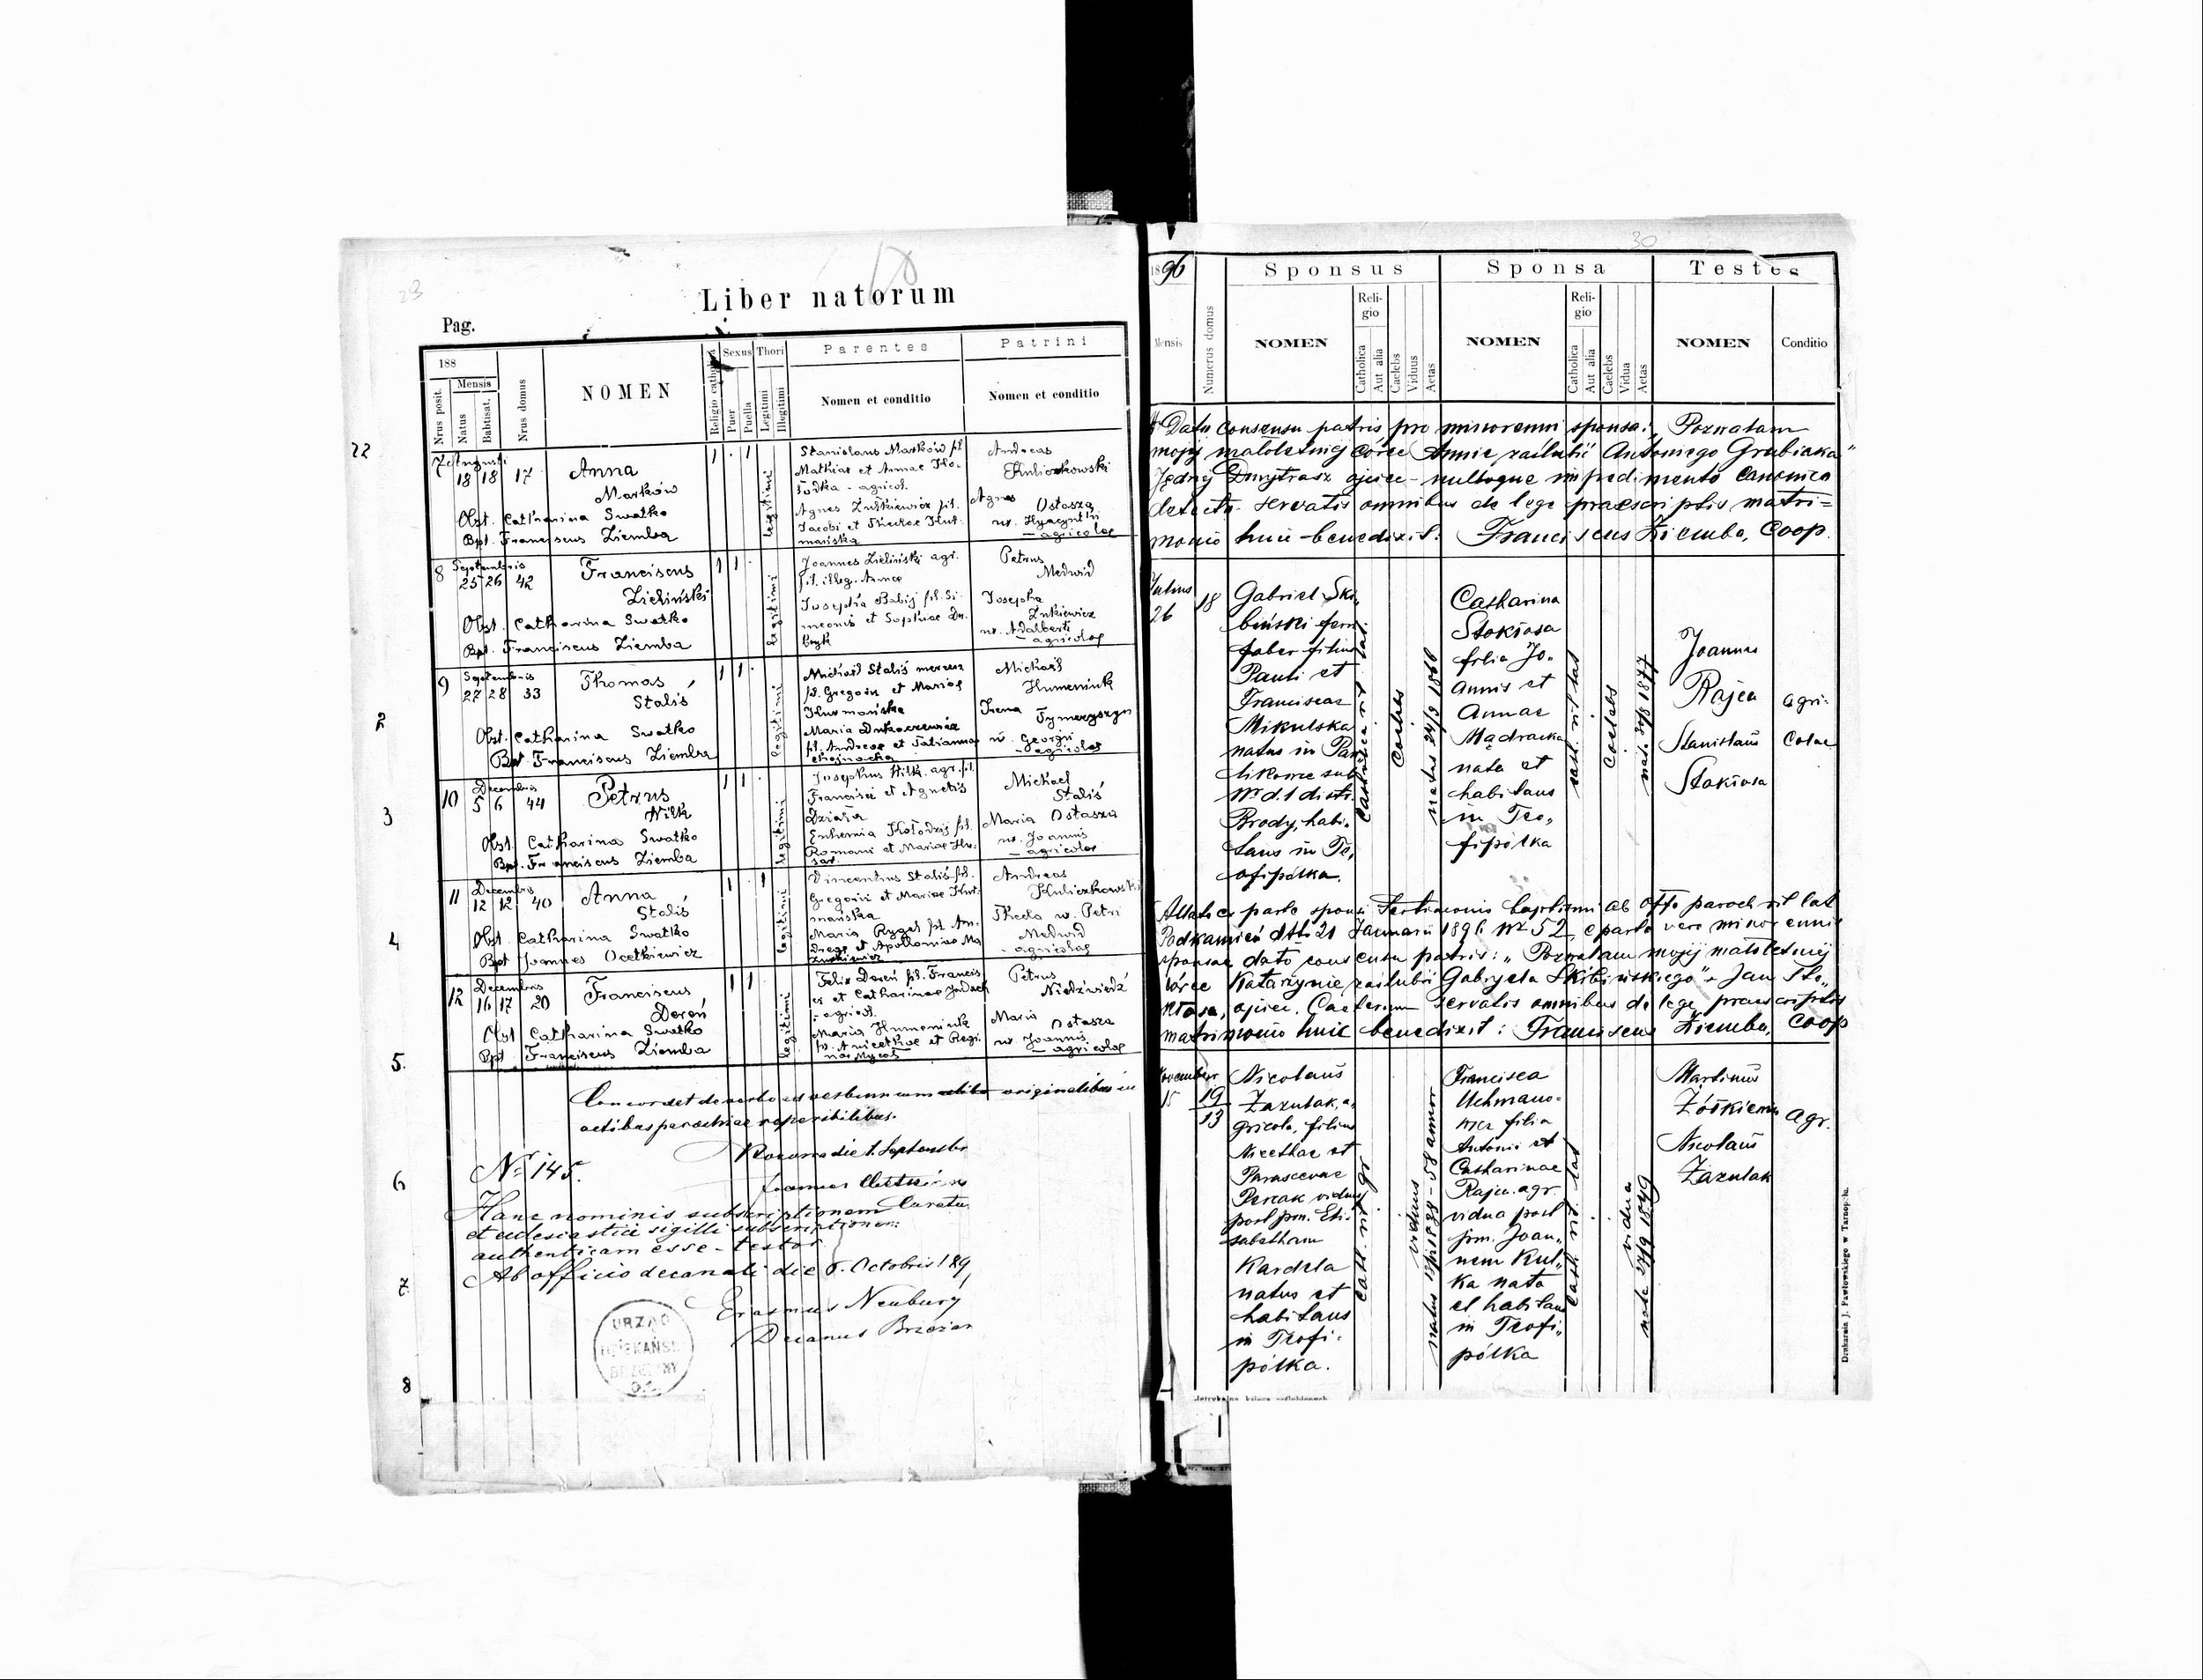 23
Liber natorum
Pag.
188
Nrus posit.
Mensis
Natus
Babtisat.
Nrus domus
NOMEN
Religio catholica
Sexus
Puer
Puella
Thori
Legitimi
Illegitimi
Parentes
Nomen et conditio
Patrini
Nomen et conditio
22
7 Augusti
18 18 17
Anna
Marków
Obst. Catharina Swatko
Bpt. Franciscus Ziemba
1 . 1
legitimi
Stanislaus Marków fil.
Mathiae et Annae
agricol.
Agnes Żułkiewicz fil.
Jacobi et Theclae Hur-
mańska
Andreas
Kuliczkowski
Agnes Ostasza
ux. Hyacynthi
- agricolae
8 Septembris
25 26 42
Franciscus
Zieliński
Obst. Catharina Swatko
Bpt. Franciscus Ziemba
1 1 .
legitimi
Joannes Zieliński agr.
fil. illeg. Annae
Josepha Babij fil. Si-
meonis et Sophiae
Petrus
Medwid
Josepha
Żukiewicz
ux. Adalberti
- agricolae
2
9 Septembris
27 28 33
Thomas
Staliś
Obst. Catharina Swatko
Bpt. Franciscus Ziemba
1 1 .
legitimi
Michael Staliś
fil. Gregorii et Mariae
Hurmańska
Maria
fil. Andreae et Tatiannae
Chojnacka
Michaël
Humeniuk
Irena Tymczyszyn
ux. Georgii
- agricolae
3
10 Decembris
5 6 44
Petrus
Wilk
Obst. Catharina Swatko
Bpt. Franciscus Ziemba
1 1 .
legitimi
Josephus Wilk agr. fil.
Francisci et Agnetis
Euhemia Kołodzij fil.
Romani et Mariae Hu-
sar.
Michael
Staliś
Maria Ostasza
ux. Joannis
- agricolae
4
11 Decembris
12 12 40
Anna
Staliś
Obst. Catharina Swatko
Bpt. Joannes Ocetkiewicz
1 . 1
legitimi
Vincentius Staliś fil.
Gregorii et Mariae Hur-
mańska
Maria Rygel fil. An-
dreae et Apolloniae Ma
zurkiewicz
Andreas
Kuliczkowski
Thecla ux. Petri
Medwid
- agricolae
5.
12 Decembris
16 17 20
Franciscus
Dereń
Obst. Catharina Swatko
Bpt. Franciscus Ziemba
1 1 .
legitimi
Felix Dereń fil. Francis
ci et Catharinae
- agricol.
Maria Humeniuk
fil. Anicethae et Regi-
nae
Petrus
Niedźwiedź
Maria Ostasza
ux. Joannis
- agricolae
Concordet de verbo ad verbum cum originalibus in
actibus parochiae reperibilibus.
die 1. Septembr
Nr 145.
Joannes
Curatus
Hanc nominis subscriptionem
et ecclesiastici sigilli subscriptionem
authenticam esse - testor
Ab officio decanali die 6. Octobris 189
Erasmus Neuburg
Decanus Brzeżan
6
7
8
URZĄD
DZIEKAŃSK
BRZEŻANY
O.Ł.
30
1896
Mensis
Numerus domus
Sponsus
NOMEN
Religio
Catholica
Aut alia
Caelebs
Viduus
Aetas
Sponsa
NOMEN
Religio
Catholica
Aut alia
Caelebs
Vidua
Aetas
Testes
NOMEN
Conditio
Dato consensu patris pro minorenni sponsa: „Pozwalam
mojej małoletniej córce Annie zaślubić Antoniego Grabiaka"
Jędrzij Dmytrasz ojciec - nulloque impedimento canonico
detecto. servatis omnibus de lege praescriptis matri=
monio huic benedixit: Franciscus Ziemba, Coop.
Julius
26
18
Gabriel Ski„
biński ferri
faber filius
Pauli et
Franciscae
Mikulska
natus in Pa
likrowe sub
Nr d. 1 distr.
Brody, habi„
tans in Te„
ofipólka.
Catholica rit. lat.
Caelebs
natus 24/3 1866
Catharina
Stokłosa
filia Jo„
annis et
Annae
Mądracka
nata et
habitans
in Teo„
fipólka
cath. rit. lat
Caelebs
nata 30/8 1877
Joannes
Rajca
Stanislaus
Stokłosa
agri-
colae
Allato ex parte sponsi Testimonio baptismi ab Offo paroch rit lat
Podkamień ddto 21 Januarii 1896 Nr 52, e parte vero minorennis
sponsae dato consensu patris: „Pozwalam mojej małoletniej
córce Katarzynie zaślubić Gabryela Skibińskiego" - Jan Sto„
kłosa, ojciec. Caeterum servatis omnibus de lege praescriptis
matrimonio huic benedixit: Franciscus Ziemba, Coop
November
15
19
13
Nicolaus
Zazulak, a„
gricola, filius
Nicethae et
Parascevae
Percak viduus
post pm. Eli-
sabetham
Kardela
natus et
habitans
in Teofi-
pólka.
cath. rit gr
viduus
58 annor
Francisca
Uchmano-
wicz filia
Antonii et
Catharinae
Rajca agr.
vidua post
pm. Joan„
nem Kul„
ka nata
et habitans
in Teofi„
pólka
cath. rit. lat
vidua
nata 27/9 1849
Martinus
Żółkiewicz
Nicolaus
Zazulak
agr.
Drukarnia J. Pawłowskiego w Tarnopolu.